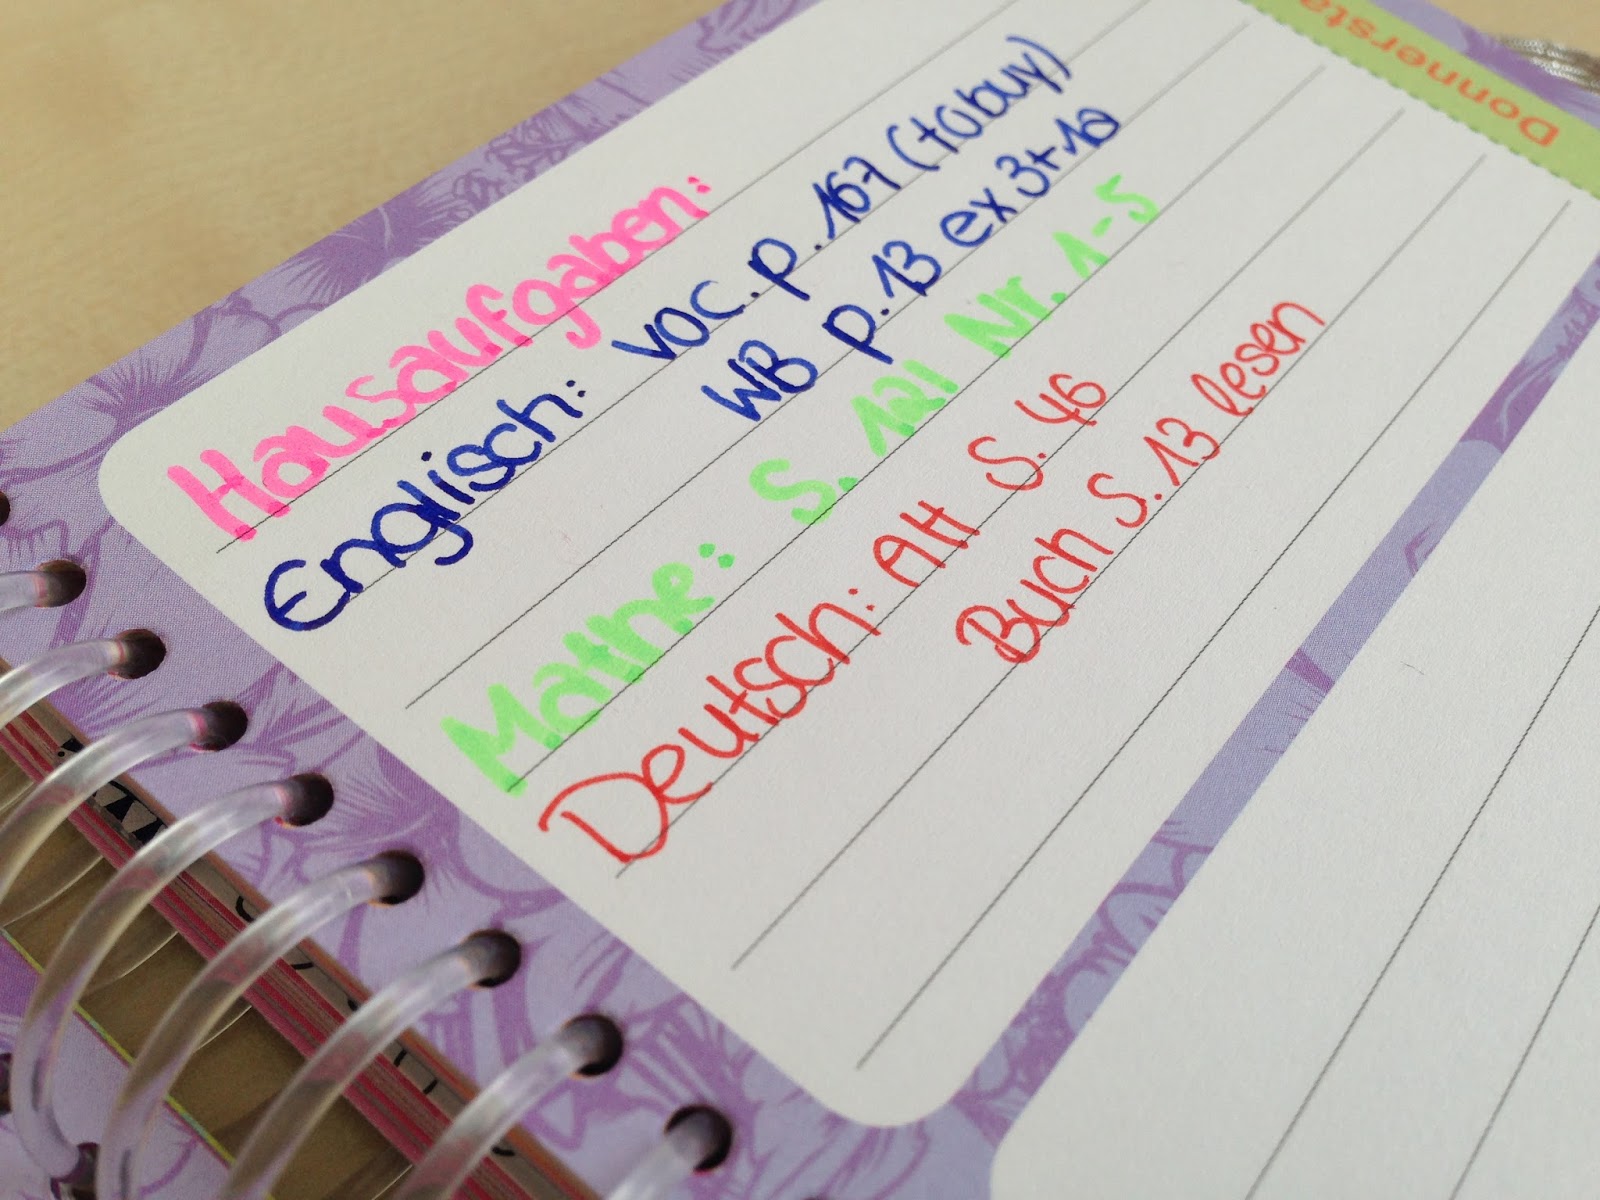 Donnersta
Hausaufgaben:
Englisch: voc. p. 167 (to buy)
WB p. 13 ex 3+10
Mathe: S. 121 Nr. 1-5
Deutsch: AH S. 46
Buch S. 13 lesen